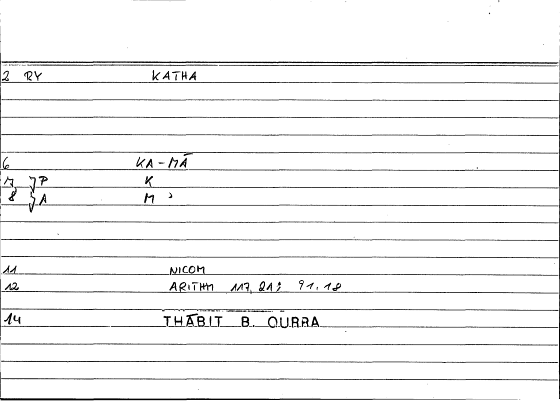 2 RY KATHA
6 KA-MĀ
7 }P K
8 }A M ʾ
11 NICOM
12 ARITHM 117, 21; 91.18
14 THĀBIT B. QURRA